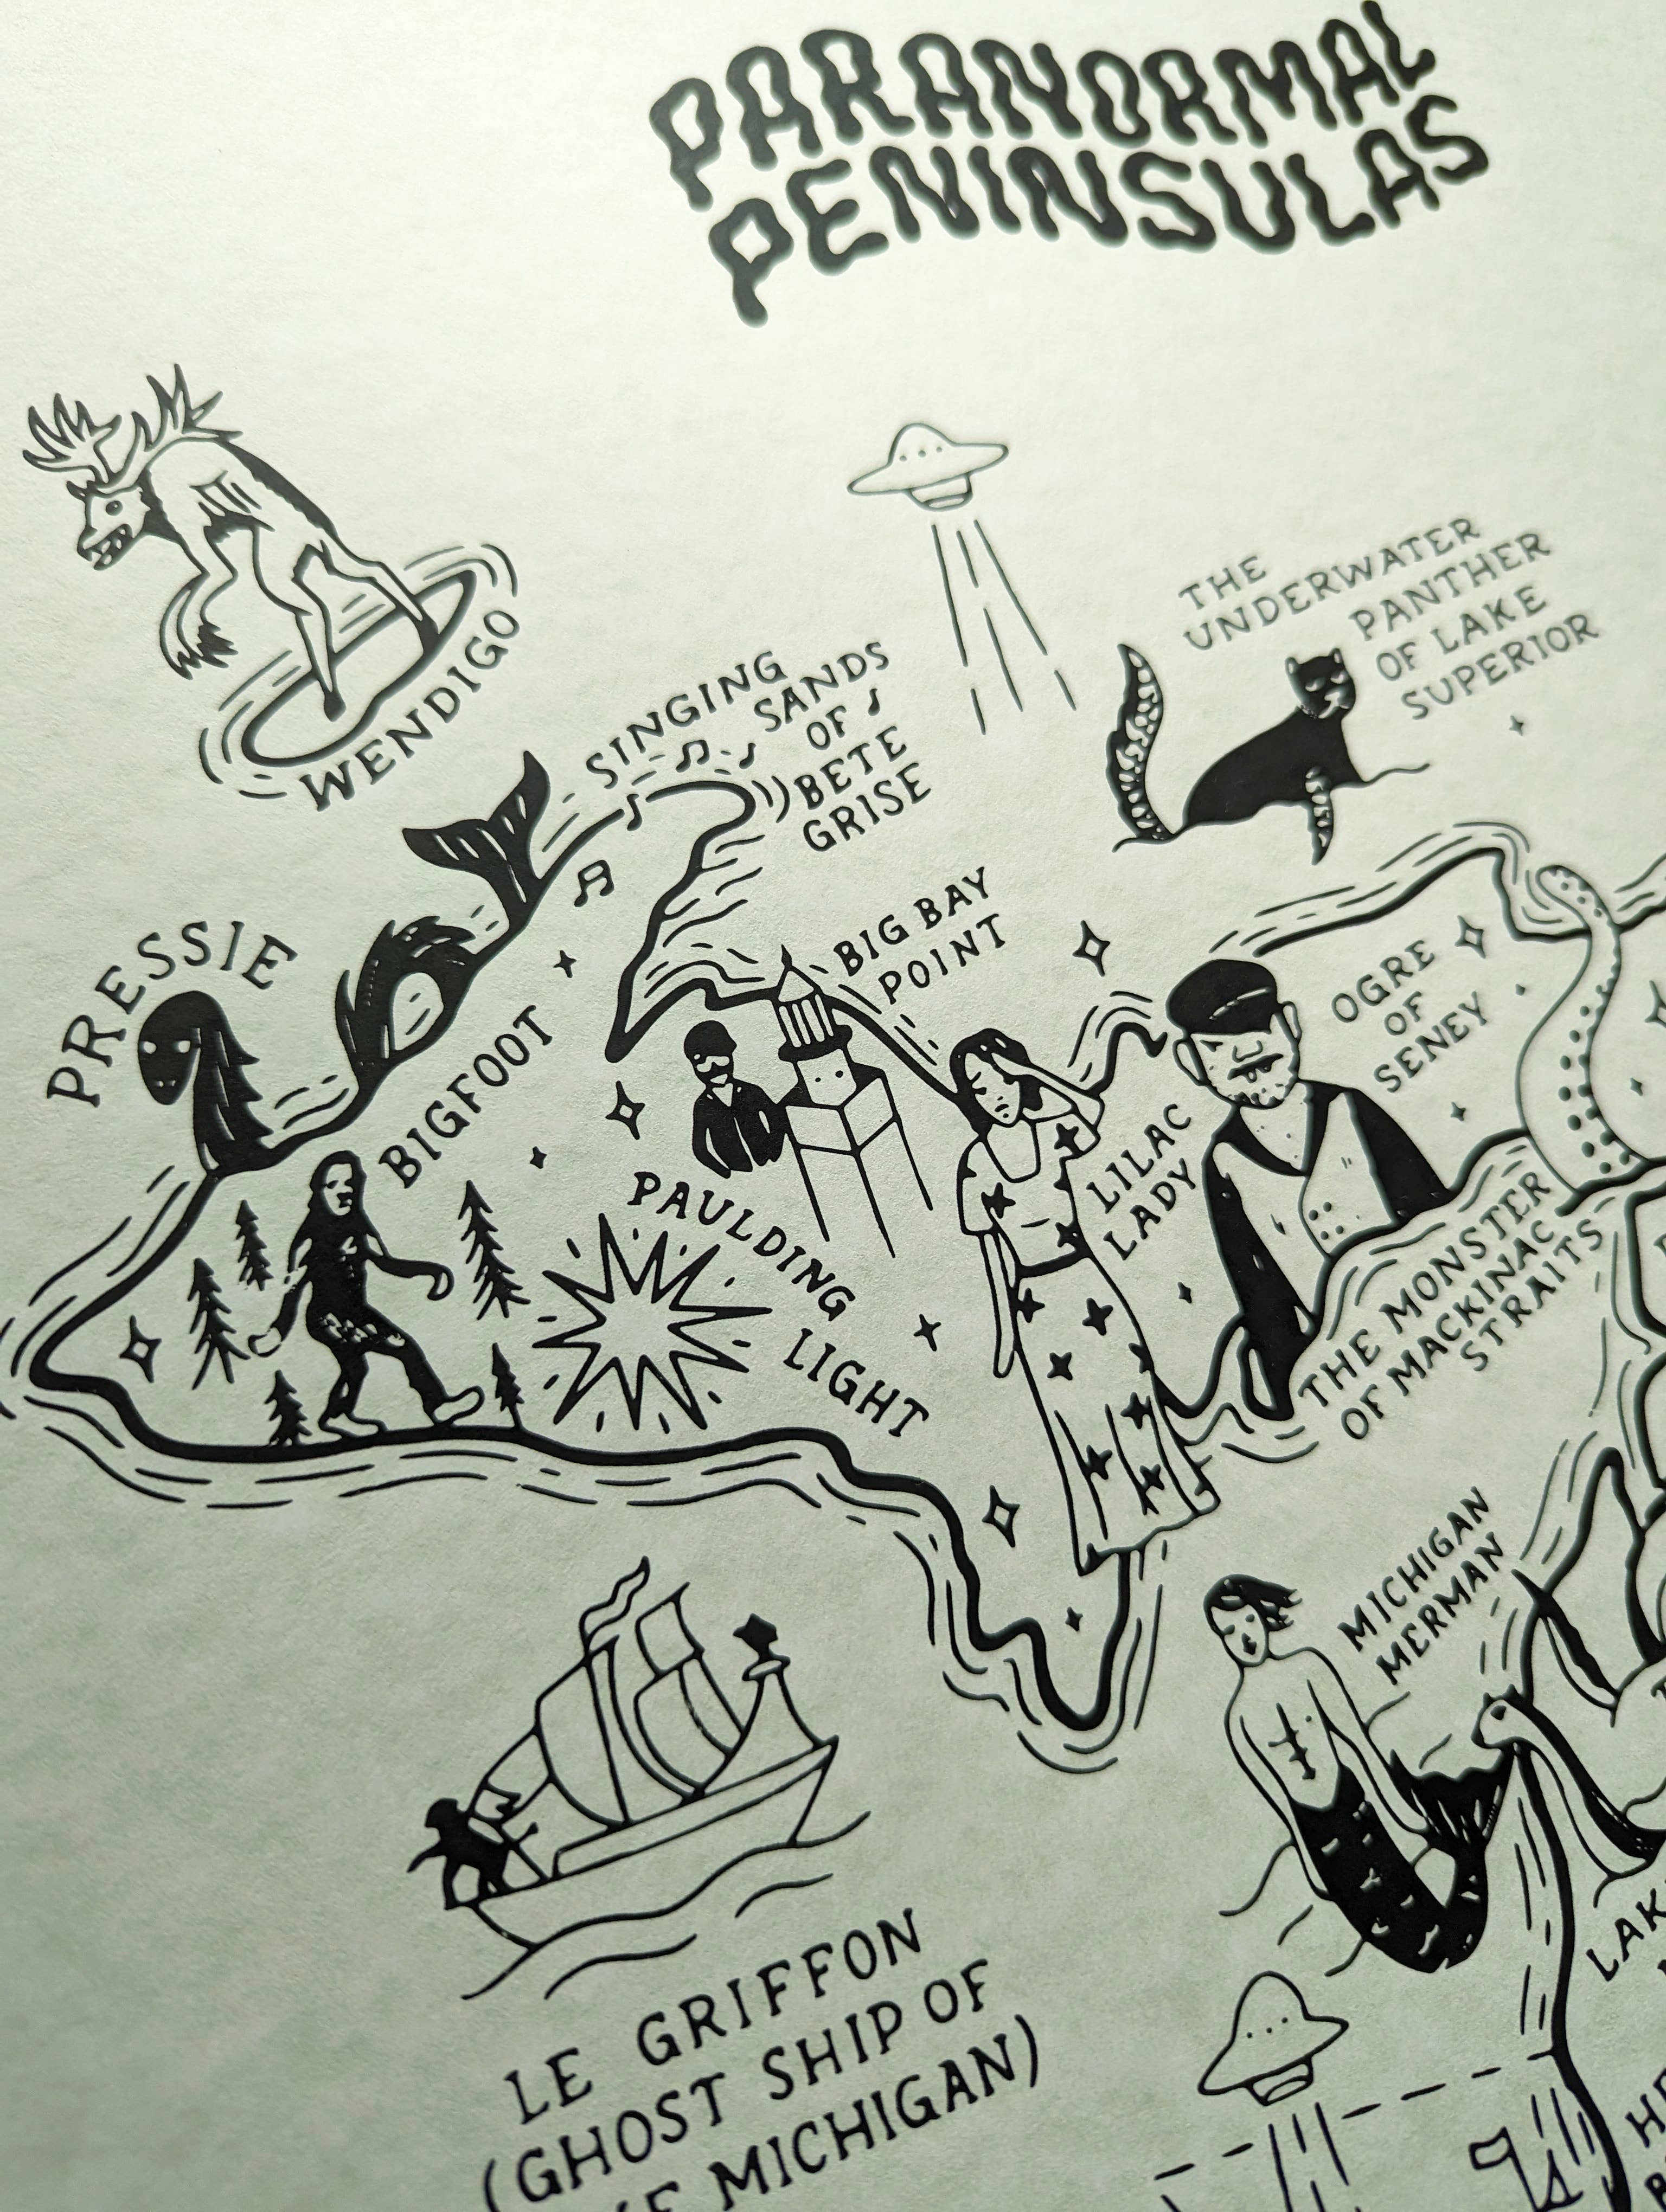 PARANORMAL
PENINSULAS
WENDIGO
THE
UNDERWATER
PANTHER
OF LAKE
SUPERIOR
SINGING
SANDS
OF
BETE
GRISE
PRESSIE
BIGFOOT
BIG BAY
POINT
OGRE
OF
SENEY
PAULDING
LIGHT
LILAC
LADY
THE MONSTER
OF MACKINAC
STRAITS
MICHIGAN
MERMAN
LE GRIFFON
(GHOST SHIP OF
MICHIGAN)